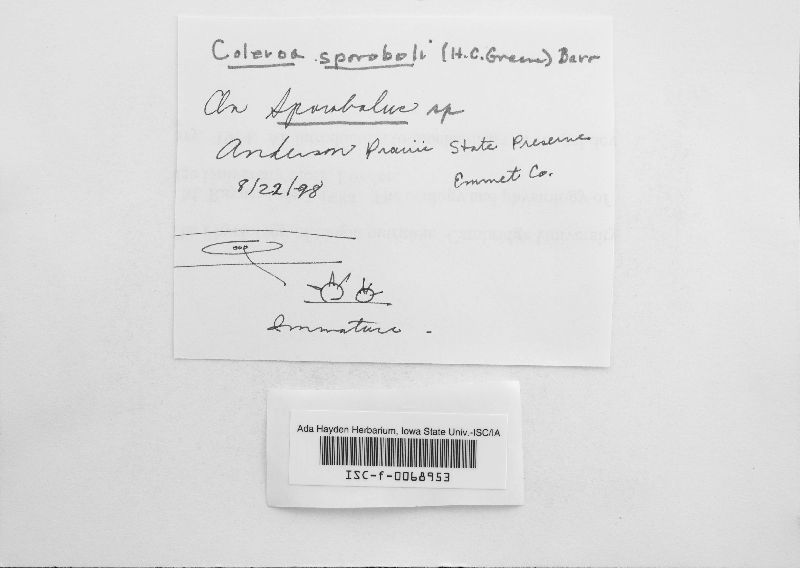 Coleroa sporoboli (H.C. Greene) Barr
On Sporobolus sp
Anderson Prairie State Preserve
Emmet Co.
8/22/98
Immature.
Ada Hayden Herbarium, Iowa State Univ.-ISC/IA
ISC-f-0068953